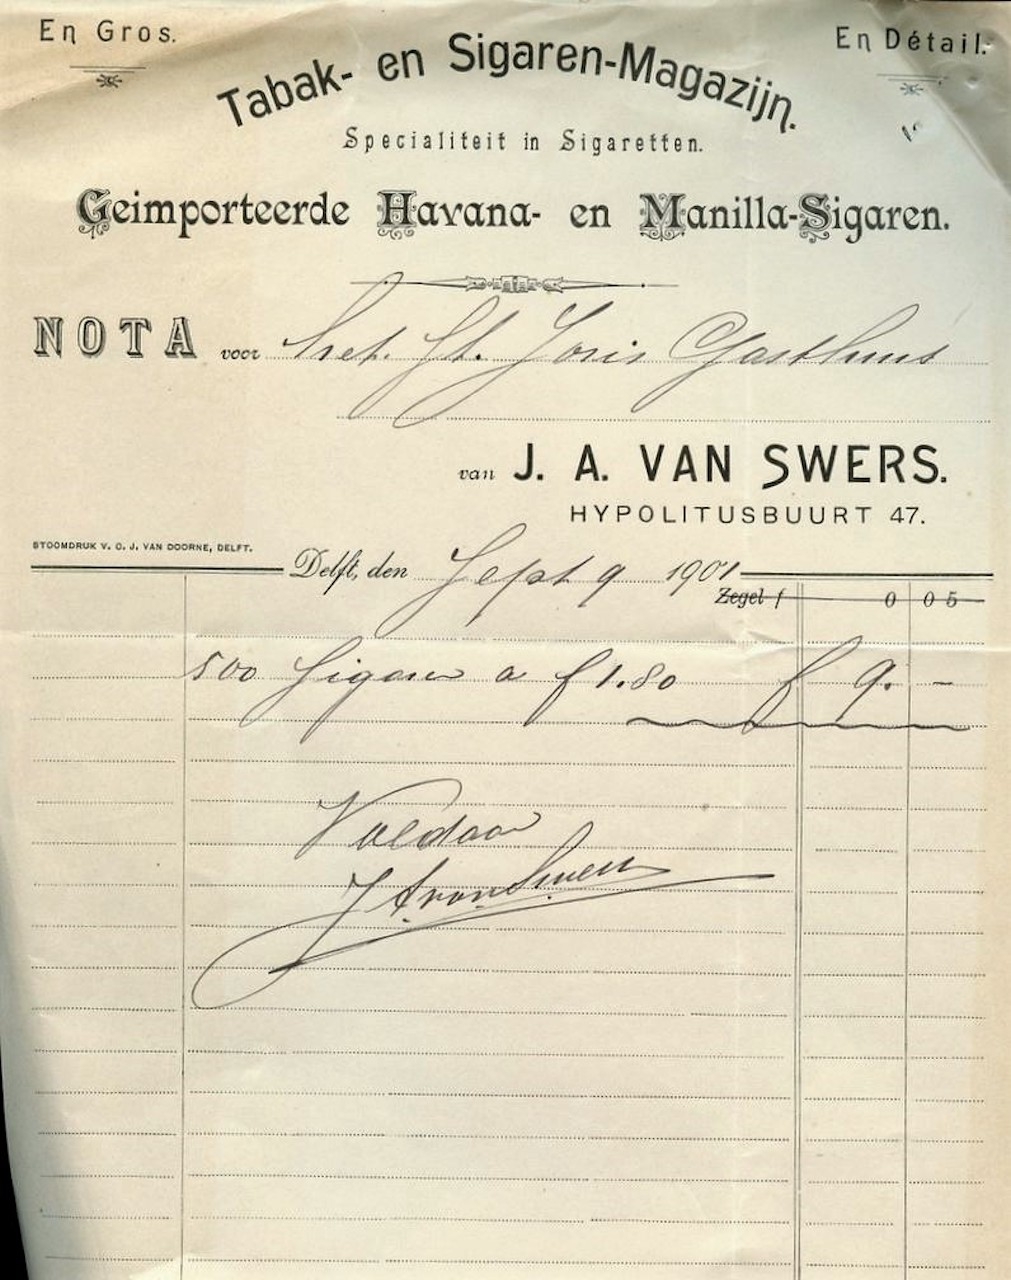 En Gros.
En Détail.
Tabak- en Sigaren-Magazijn.
Specialiteit in Sigaretten.
Geimporteerde Havana- en Manilla-Sigaren.
NOTA voor het St. Joris Gasthuis
van J. A. VAN SWERS.
HYPOLITUSBUURT 47.
STOOMDRUK V. C. J. VAN DOORNE, DELFT.
Delft, den Sept 9 1901
Zegel f 0 05
500 Sigaren a f 1.80 f 9. –
Voldaan
J A van Swers